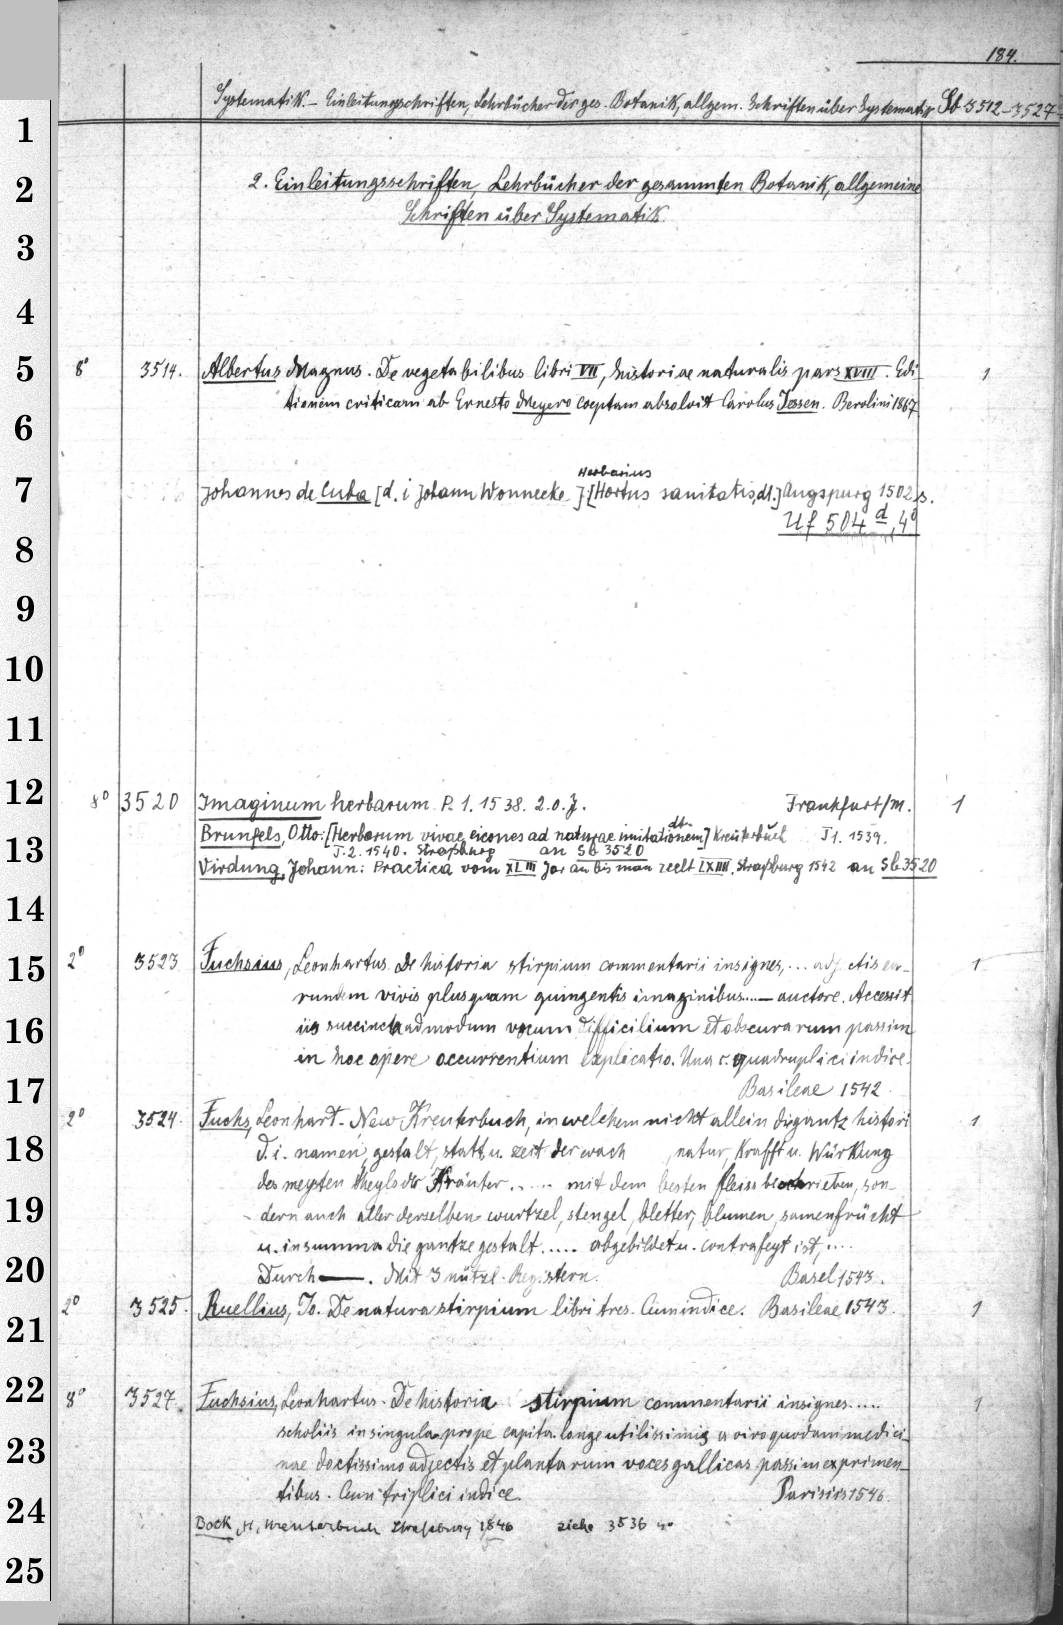 184.
Systematik. - Einleitungsschriften, Lehrbücher der ges. Botanik, allgem. Schriften über Systematik Sb 3512-3527
1
2 2. Einleitungsschriften, Lehrbücher der gesammten Botanik, allgemeine
Schriften über Systematik.
3
4
5 8° 3514. Albertus Magnus. De vegetabilibus libri VII, historiae naturalis pars XVIII. Edi- 1
tionem criticam ab Ernesto Meyero coeptam absolvit Carolus Jessen. Berolini 1867
6
Herbarius
7 Johannes de Cuba [d. i Johann Wonnecke]: [Hortus sanitatis, dt.] Augspurg 1502 s.
Uf 504 d, 4°
8
9
10
11
12 8° 3520 Imaginum herbarum P. 1. 1538. 2. o. J. Frankfurt/M. 1
dt.
13 Brunfels, Otto: [Herbarum vivae eicones ad naturae imitationem] Kreüterbuch T 1. 1539.
T. 2. 1540. Straßburg an Sb 3520
Virdung, Johann: Practica vom XLIII Jar an bis man zeelt LXIIII. Straßburg 1542 an Sb 3520
14
15 2° 3523 Fuchsius, Leonhartus. De historia stirpium commentarii insignes, ... adjectis ea- 1
rundem vivis plusquam quingentis imaginibus.... — auctore. Accessit
16 iis succincta admodum vocum difficilium et obscurarum passim
in hoc opere occurrentium explicatio. Una c. quadruplici indice.
17 Basileae 1542.
2° 3524. Fuchs, Leonhart. New Kreuterbuch, in welchem nicht allein die gantz histori 1
18 d. i. namen, gestalt, statt u. zeit der wach natur, krafft u. Würkung
des meysten theyls der Kräuter ..... mit dem besten fleiss beschrieben, son-
19 dern auch aller derselben wurtzel, stengel, bletter, blumen, samen frücht
u. in summa die gantze gestalt ..... abgebildet u. contrafeyt ist, ....
20 Durch —. Mit 3 nützl. Registern. Basel 1543.
2° 3525. Ruellius, Jo. De natura stirpium libri tres. Cum indice. Basileae 1543. 1
21
22 8° 3527. Fuchsius, Leonhartus. De historia stirpium commentarii insignes ..... 1
scholiis in singula prope capita longe utilissimis a viro quodam medici-
23 nae doctissimo adjectis et plantarum voces gallicas passim exprimen-
tibus. Cum triplici indice. Parisiis 1546.
24 Bock, H, Kreuterbuch Straßburg 1546 siehe 3536 4°
25